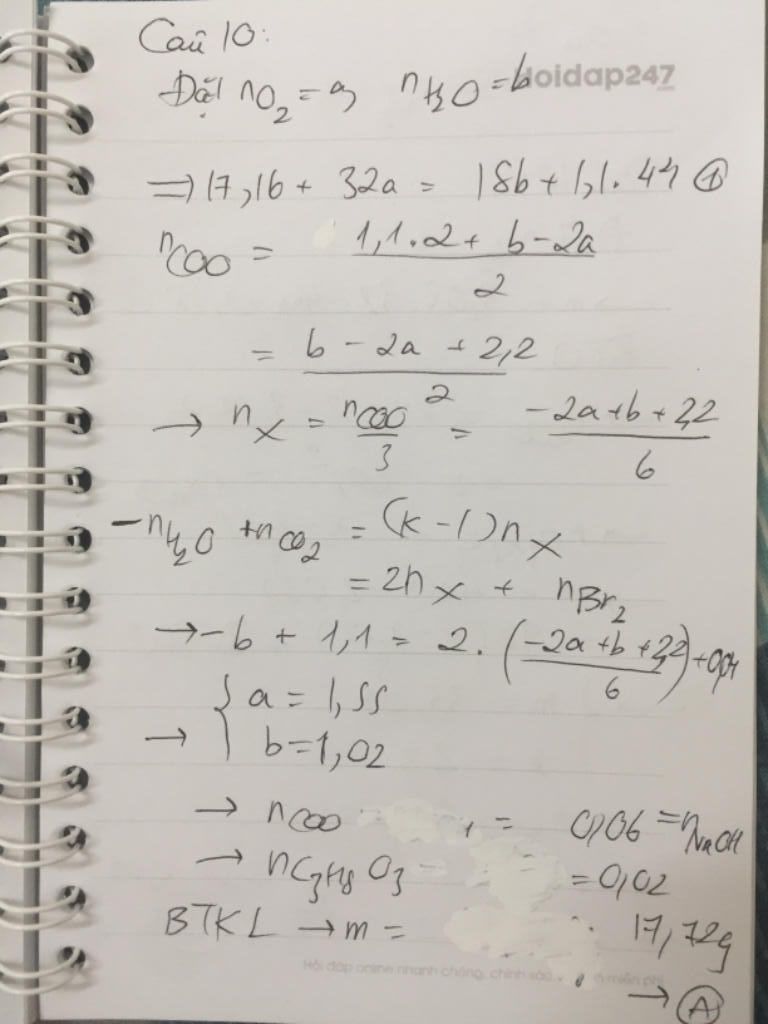 Câu 10:
Đặt nO2 = a, nH2O = b
loidap247
=> 17,16 + 32a = 18b + 1,1.44 ①
nCOO = (1,1.2 + b - 2a)/2
= (b - 2a + 2,2)/2
→ nX = nCOO/3 = (-2a + b + 2,2)/6
-nH2O + nCO2 = (k - 1)nX
= 2nX + nBr2
→ -b + 1,1 = 2.((-2a + b + 2,2)/6) + 0,04
→ { a = 1,55
b = 1,02
→ nCOO = 0,06 = nNaOH
→ nC3H8O3 = 0,02
BTKL → m = 17,72g
Hỏi đáp online nhanh chóng, chính xác miễn phí
→ Ⓐ